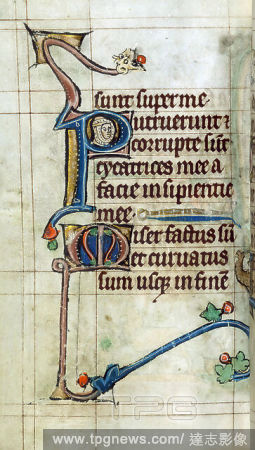 sunt super me
Putruerunt &
corrupte sūt
cycatrices mee a
facie insipientie
mee.
Miser factus sū
et curuatus
sum usq; in finē
TPG
www.tpgnews.com/達志影像